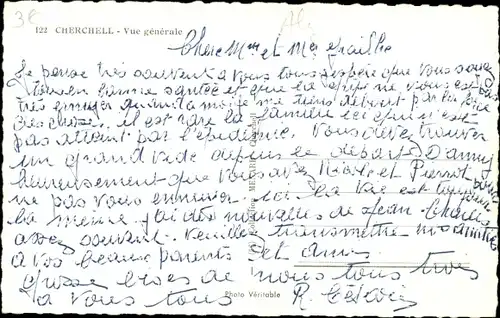 3€
122 CHERCHELL - Vue générale
Chere Mme et Mr
Je pense très souvent a vous tous espère que vous soyez
tous en bonne santée et que la grippe ne vous est pas
très
choses. il est rare la famille ici qui n'est
pas atteint par l'épidémie. Vous devez trouver
un grand vide depuis le départ D'anny
heureusement que vous avez Nicole et Pierrot
ne pas vous ennuier. ici la vie est toujours
la meme. j'ai des nouvelles de Jean-Charles
assez souvent. Veuillez transmettre mes amitiés
a vos beaux parents et amis
Grosse bises de nous tous trois
a vous tous R.
Photo Véritable